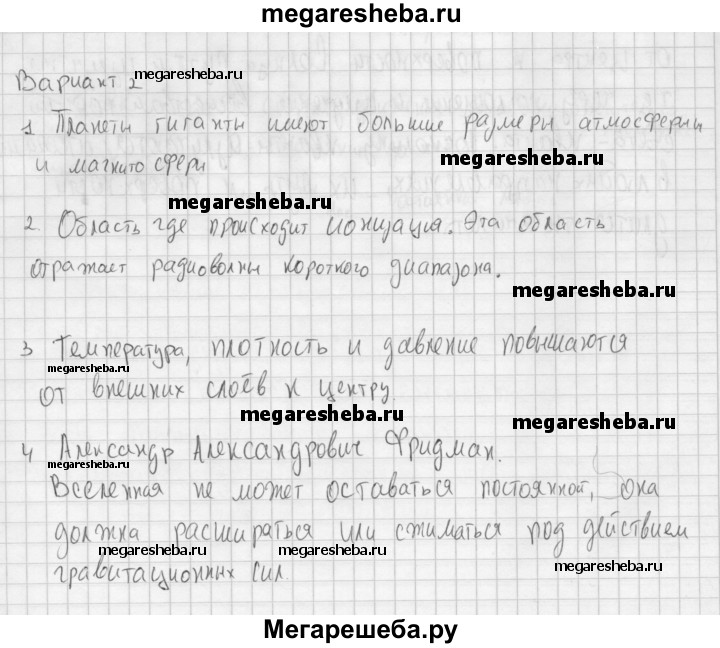 megaresheba.ru
Вариант 2 megaresheba.ru
1 Планеты гиганты имеют большие размеры атмосферы
и магнитосферы megaresheba.ru
megaresheba.ru
2. Область где происходит ионизация. Эта область
отражает радиоволны короткого диапазона.
megaresheba.ru
3 Температура, плотность и давление повышаются
megaresheba.ru
от внешних слоёв к центру.
megaresheba.ru megaresheba.ru
4 Александр Александрович Фридман.
megaresheba.ru
Вселенная не может оставаться постоянной, она
должна расширяться или сжиматься под действием
megaresheba.ru megaresheba.ru megaresheba.ru
гравитационных сил.
Мегарешеба.ру